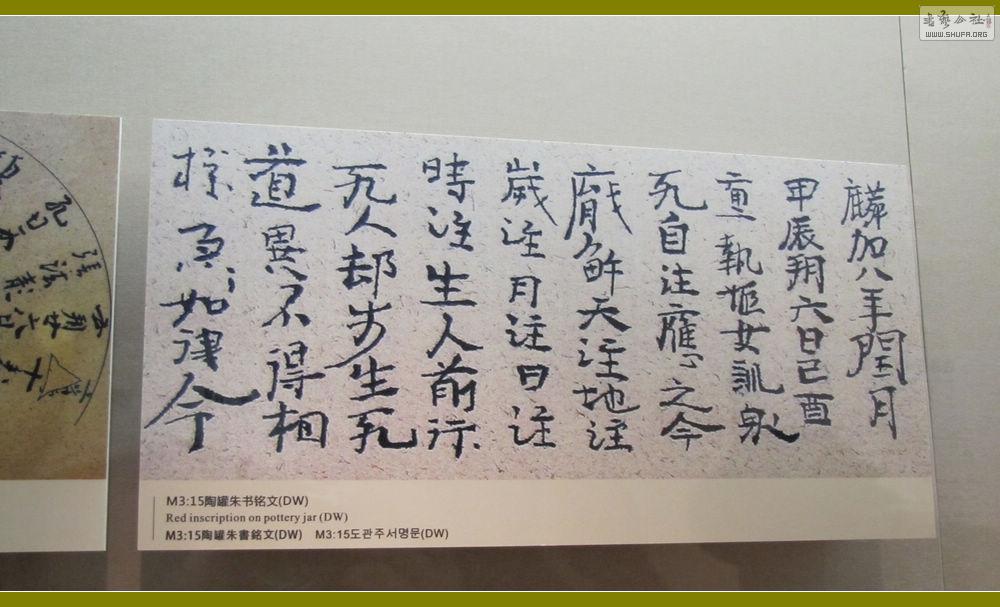 书艺公社
WWW.SHUFA.ORG
麟加八年閏月
甲辰朔六日己酉
直執姬女訓身
死自注應之今
厭解天注地注
歲注月注日注
時注生人前行
死人却步生死
道異不得相
急〻如律令
M3:15陶罐朱书铭文(DW)
Red inscription on pottery jar (DW)
M3:15陶罐朱書銘文(DW) M3:15도관주서명문(DW)